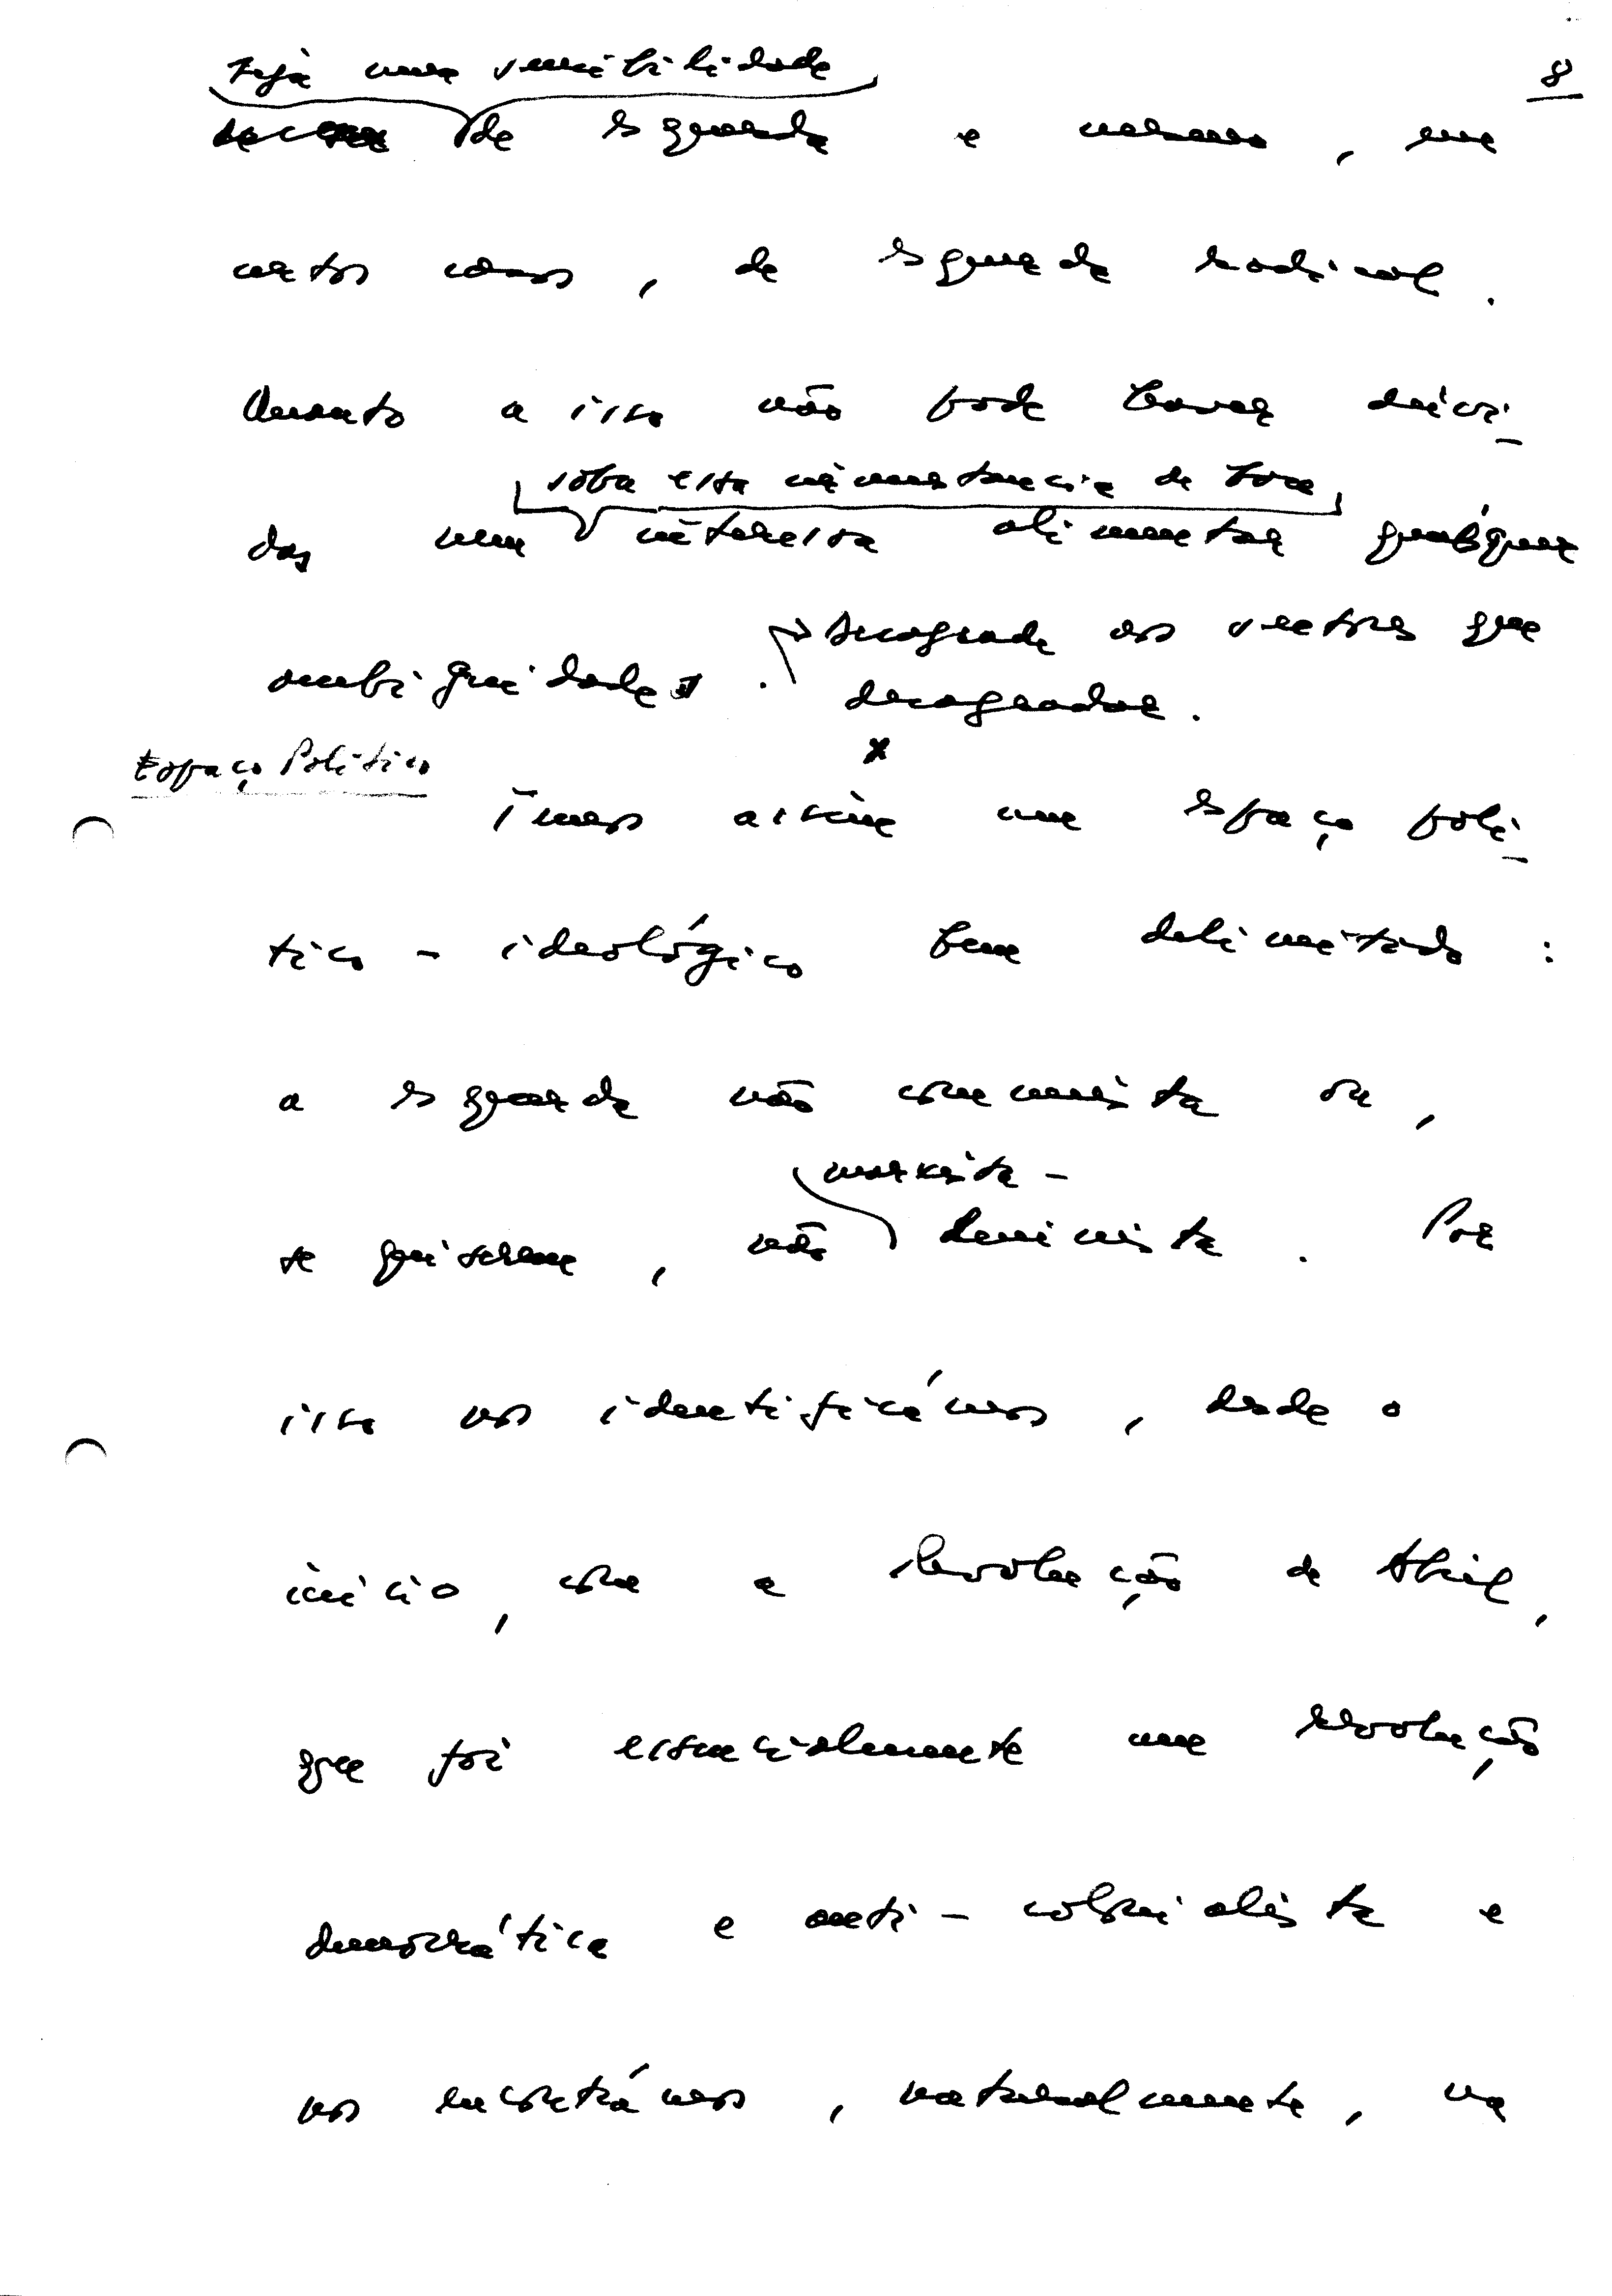 8
seja uma sensibilidade
de esquerda e mesmo, em
certos casos, de esquerda radical.
Quanto a isso não pode haver dúvi-
sobre esta circunstancia de
das nem interessa alimentar quaisquer
ambiguidades. desagrade aos sectores que
desagradar.
x
Espaço Político
Temos assim um espaço polí-
tico-ideológico bem delimitado:
a esquerda não comunista ou,
marxista-
se quiserem, não leninista. Por
isso nos identificámos, desde o
início, com a Revolução de Abril,
que foi essencialmente uma revolução
democrática e anti-colonialista e
nos encontrámos, naturalmente, na